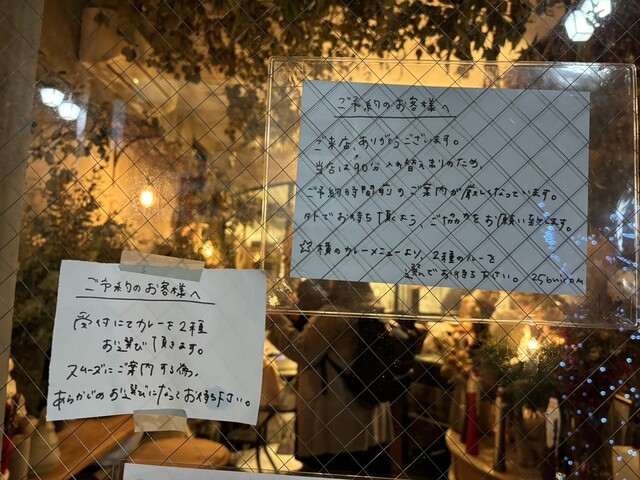 ご予約のお客様へ
ご来店、ありがとうございます。
当店は90分入れ替えありのため
ご予約時間前のご案内が厳しくなっています。
外でお待ち頂くよう、ご協力をお願い致します。
☆横のカレーメニューより、2種のルーを
選んでお待ち下さい。 256nicom
ご予約のお客様へ
受付にてカレーを2種
お選び頂きます。
スムーズにご案内する為、
あらかじめお選びになってお待ち下さい。